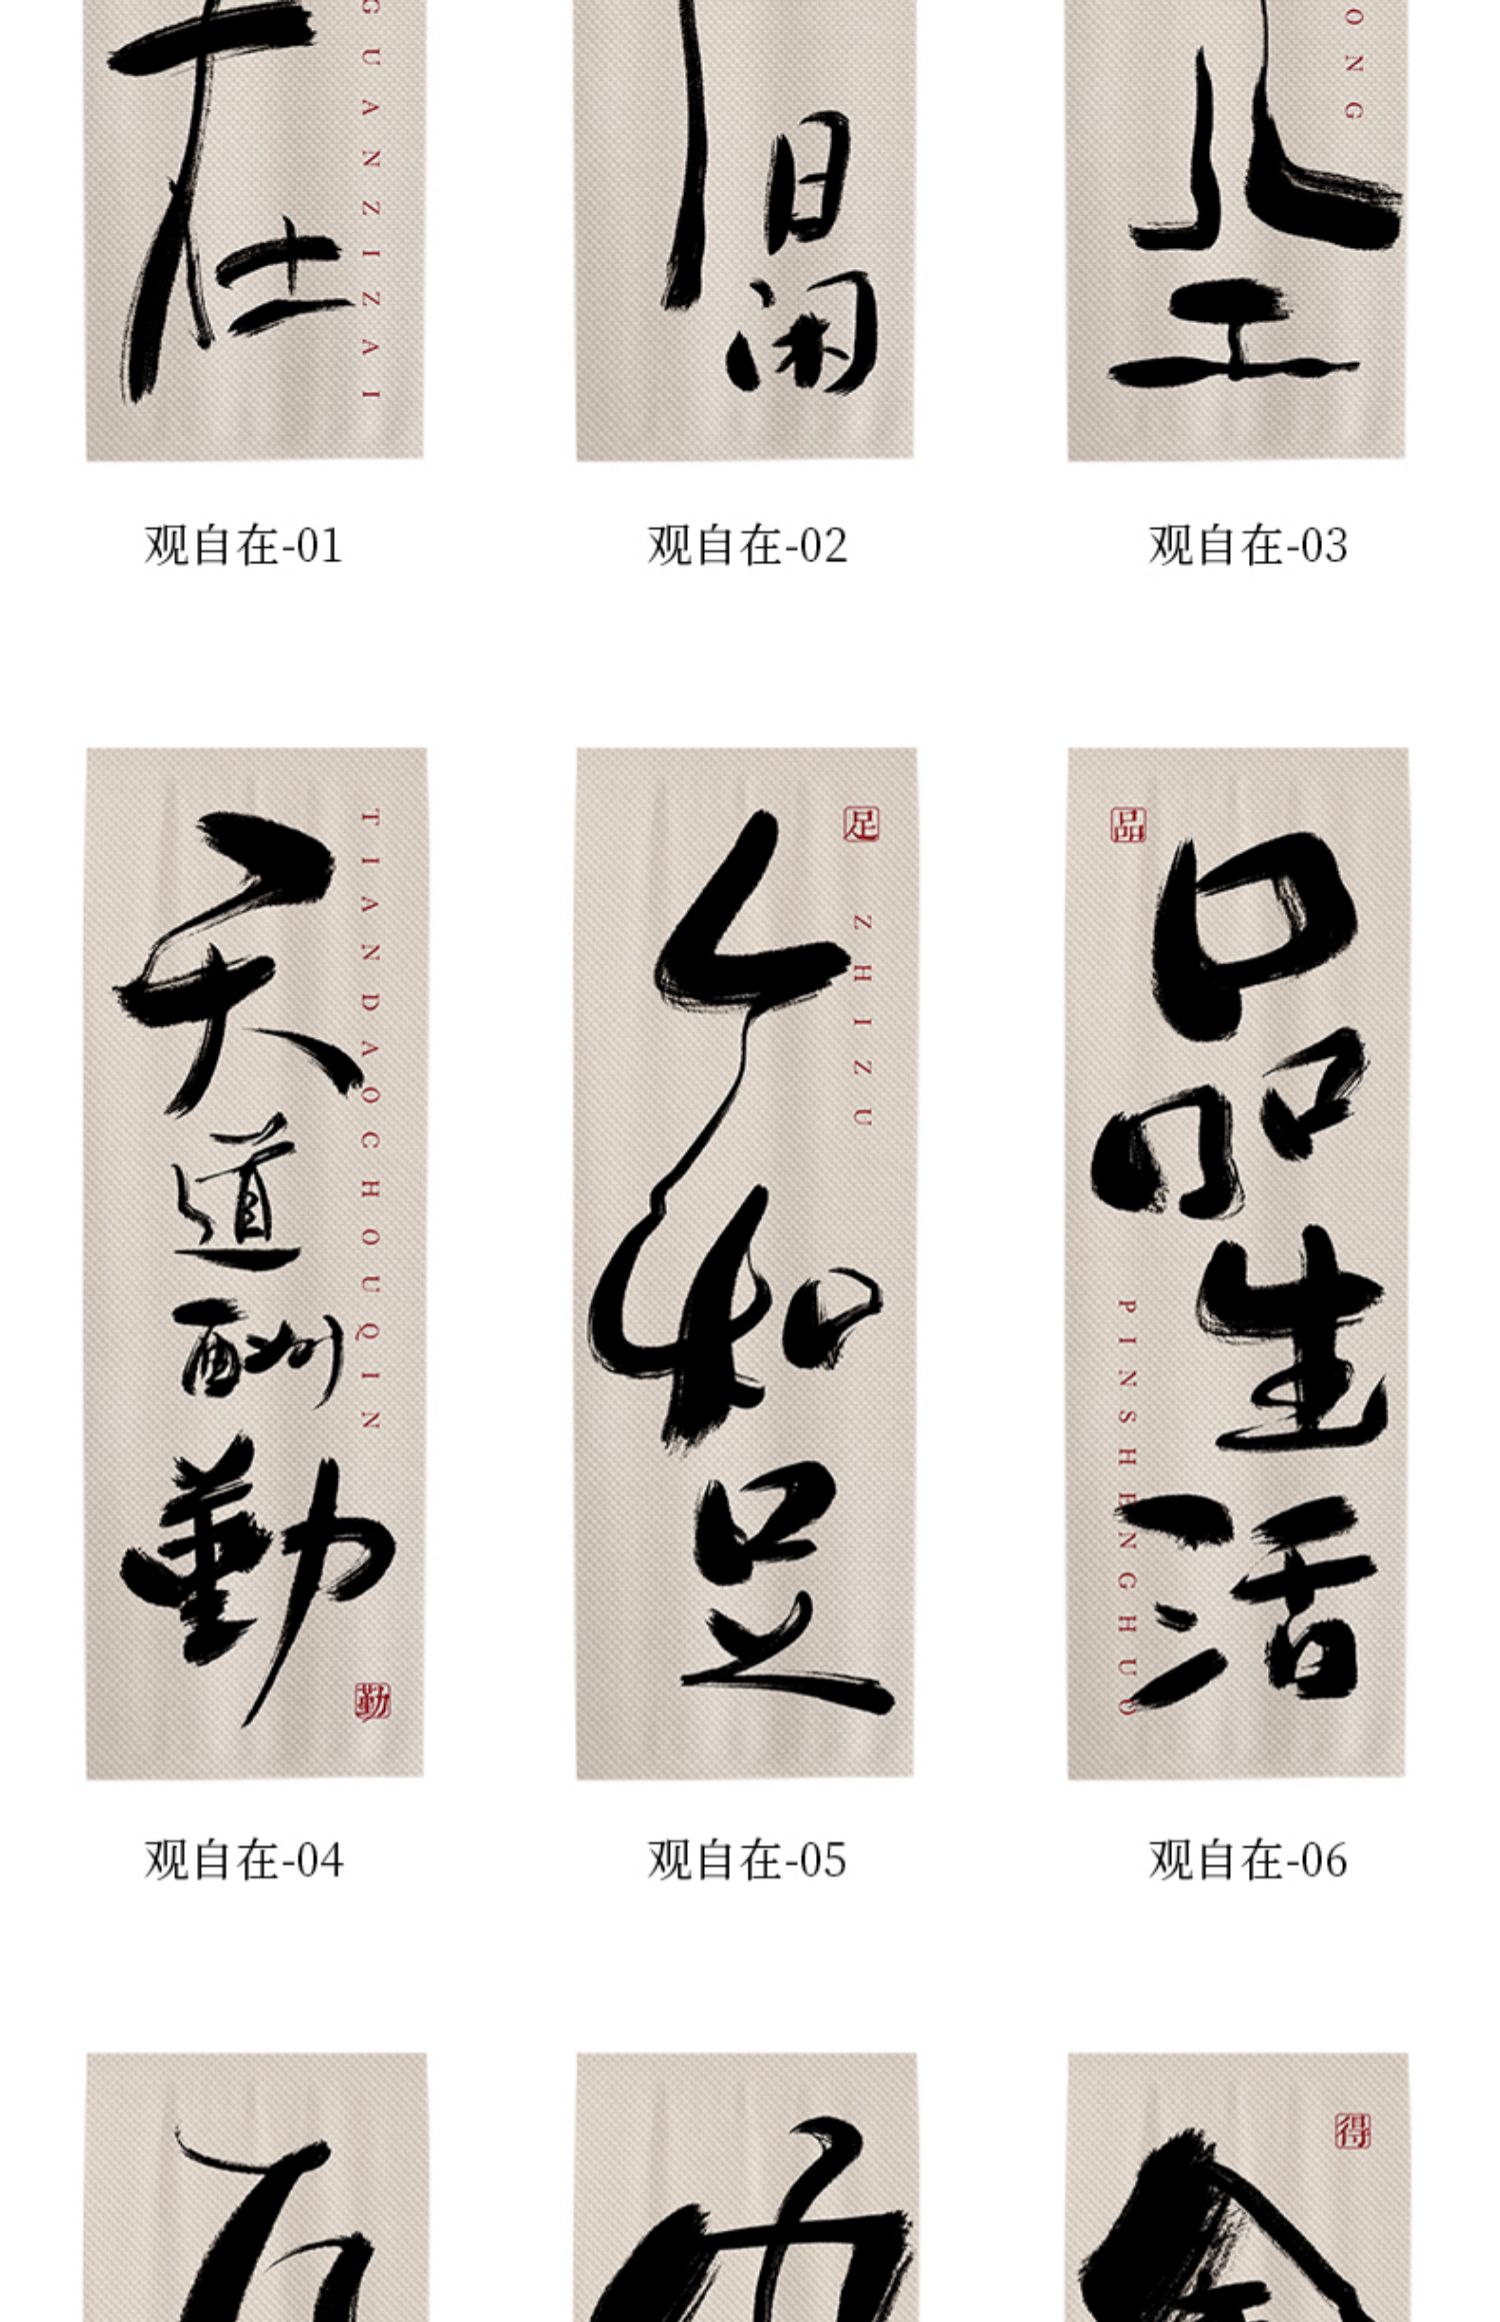 在
GUANZIZAI
日
闲
ONG
观自在-01
观自在-02
观自在-03
天道酬勤
TIANDAOCHOUQIN
勤
足
ZHIZU
知足
品
品生活
PINSHENGHUO
观自在-04
观自在-05
观自在-06
得